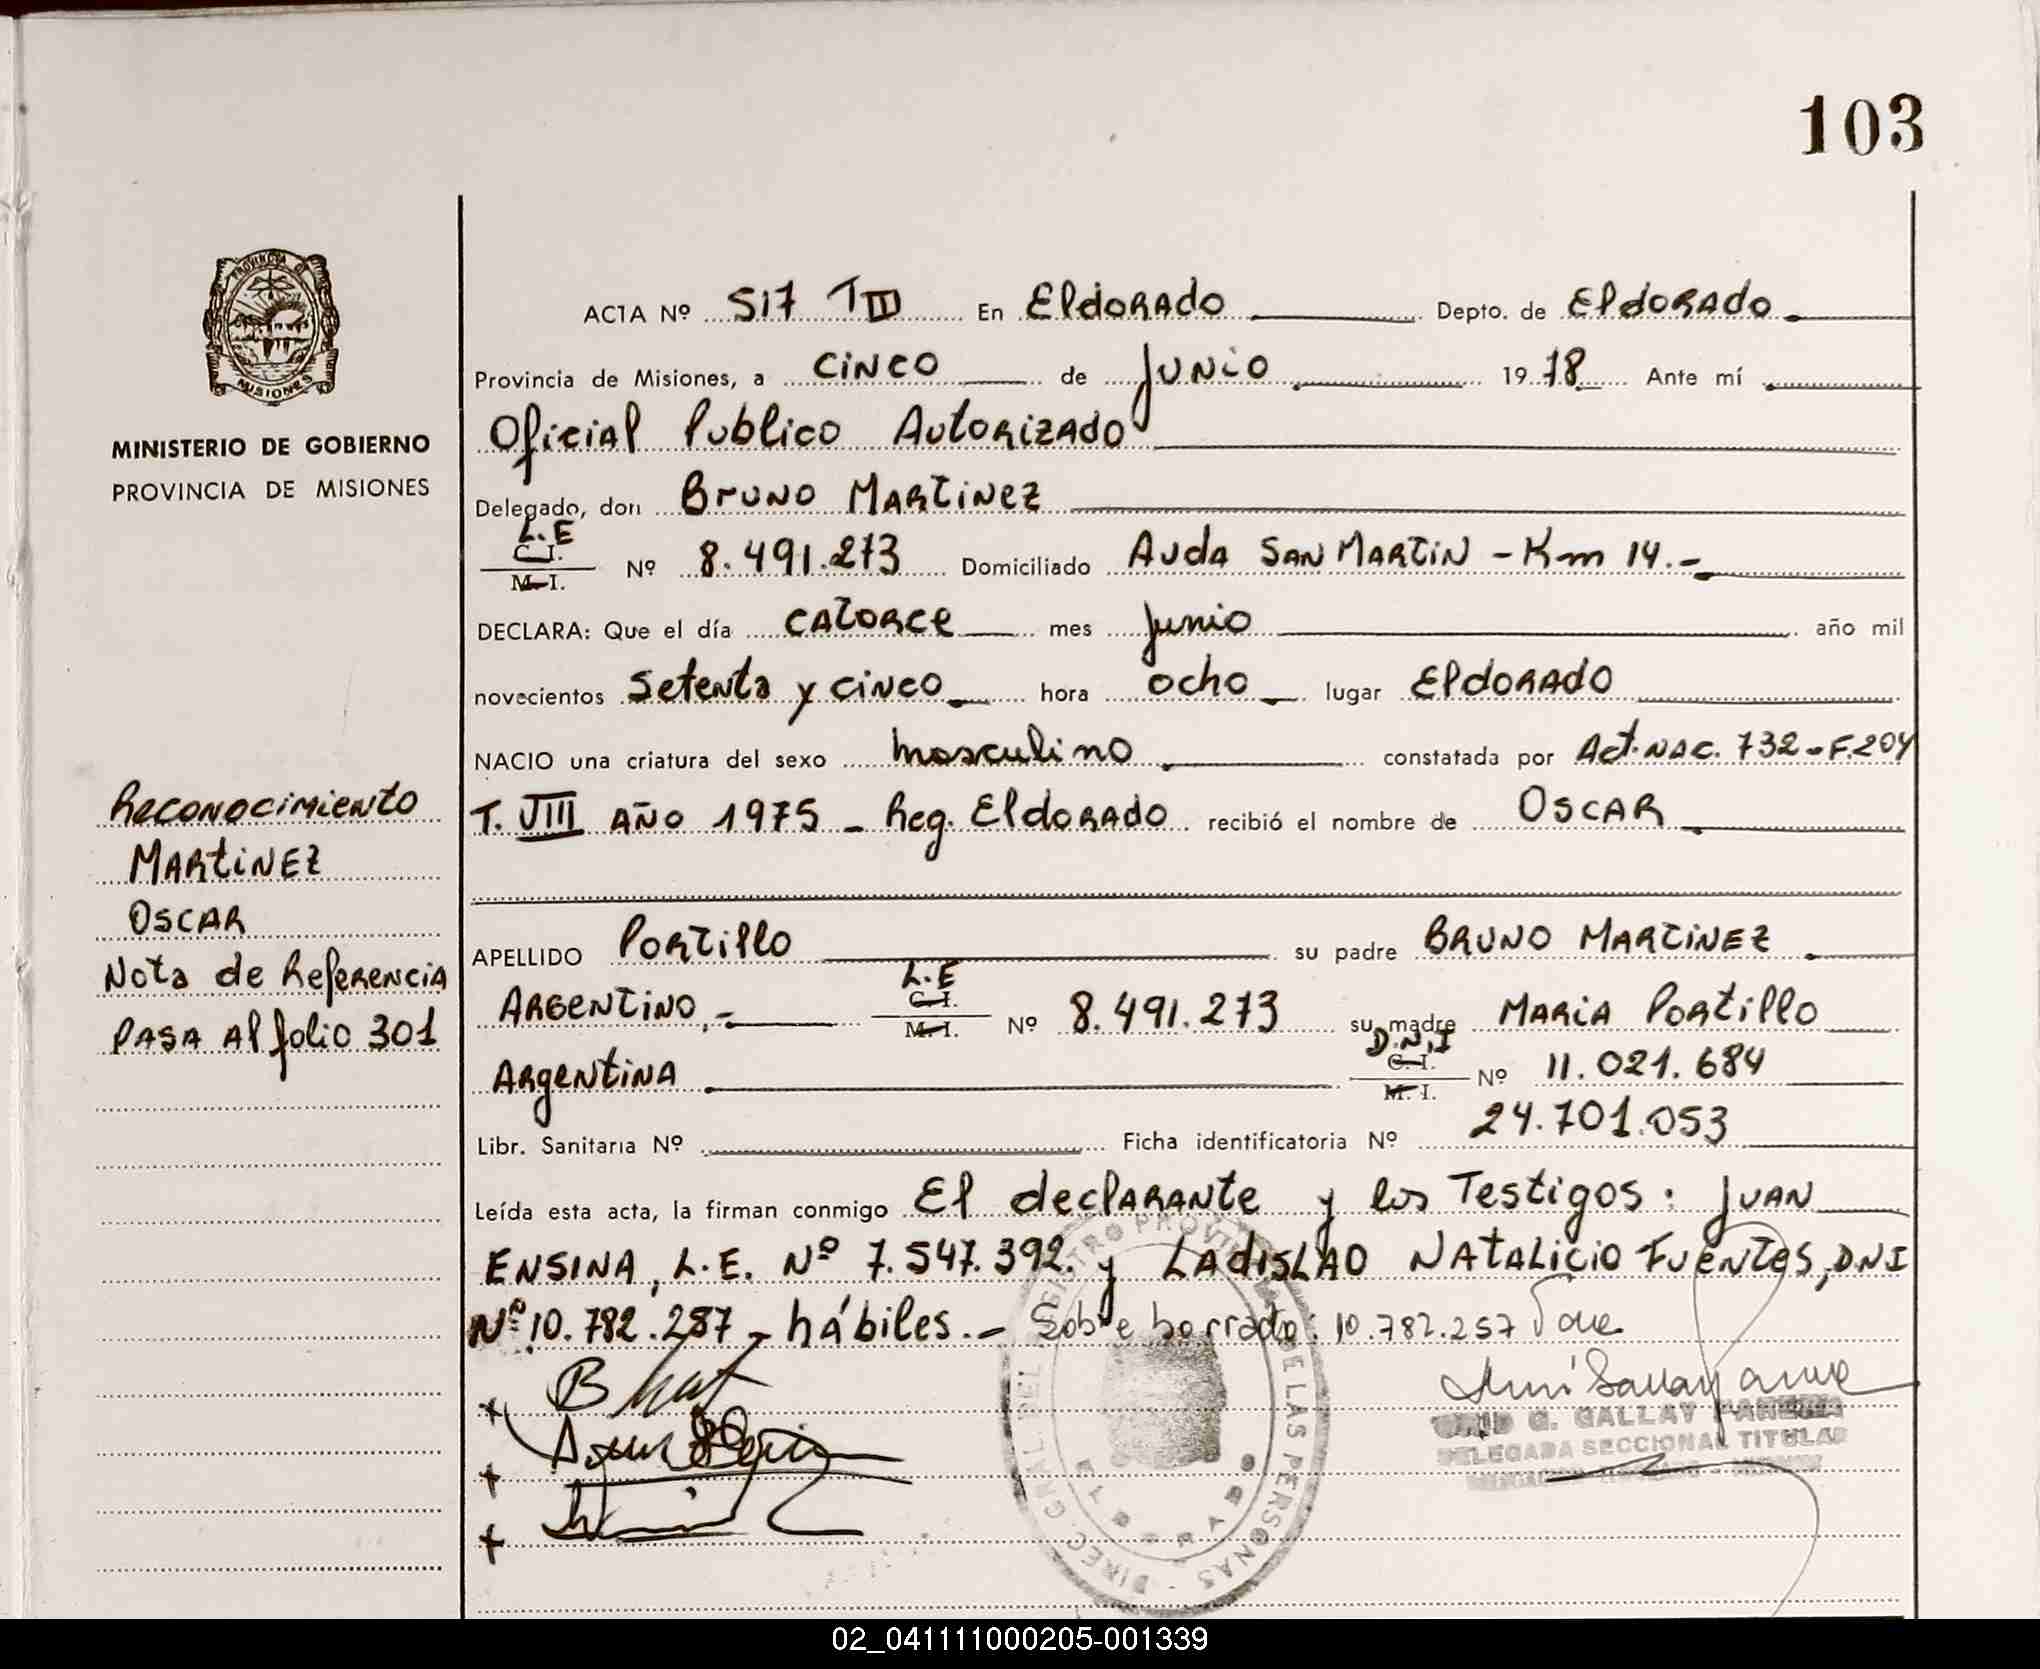 103
PROVINCIA DE
MISIONES
MINISTERIO DE GOBIERNO
PROVINCIA DE MISIONES
ACTA Nº 517 T III En Eldorado Depto. de Eldorado
Provincia de Misiones, a cinco de junio 1978 Ante mí
Oficial Publico Autorizado
Delegado, don Bruno Martinez
L.E
C.I.
M.I. Nº 8.491.273 Domiciliado Avda San Martin - Km 14.-
DECLARA: Que el día catorce mes junio año mil
novecientos setenta y cinco hora ocho lugar Eldorado
NACIO una criatura del sexo masculino constatada por Act. Nac. 732 - F. 204
T. VIII Año 1975 - Reg. Eldorado recibió el nombre de Oscar
APELLIDO Portillo su padre Bruno Martinez
Argentino.- L.E
C.I.
M.I. Nº 8.491.273 su madre Maria Portillo
Argentina D.N.I
C.I.
M.I. Nº 11.021.684
Libr. Sanitaria Nº Ficha identificatoria Nº 24.701.053
Leída esta acta, la firman conmigo El declarante y los Testigos: Juan
Ensina, L.E. Nº 7.547.392. y Ladislao Natalicio Fuentes, DNI
Nº 10.782.257 - hábiles.- Sobre borrado: 10.782.257 Vale
Reconocimiento
Martinez
Oscar
Nota de Referencia
pasa al folio 301
G. GALLAY
DELEGADA SECCIONAL TITULAR
DIREC. GRAL. DEL REGISTRO PROVINCIAL DE LAS PERSONAS
ELDORADO
02_041111000205-001339